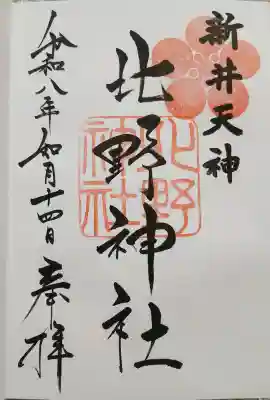 新井天神
北野神社
北野神社
令和八年 如月十四日 奉拝